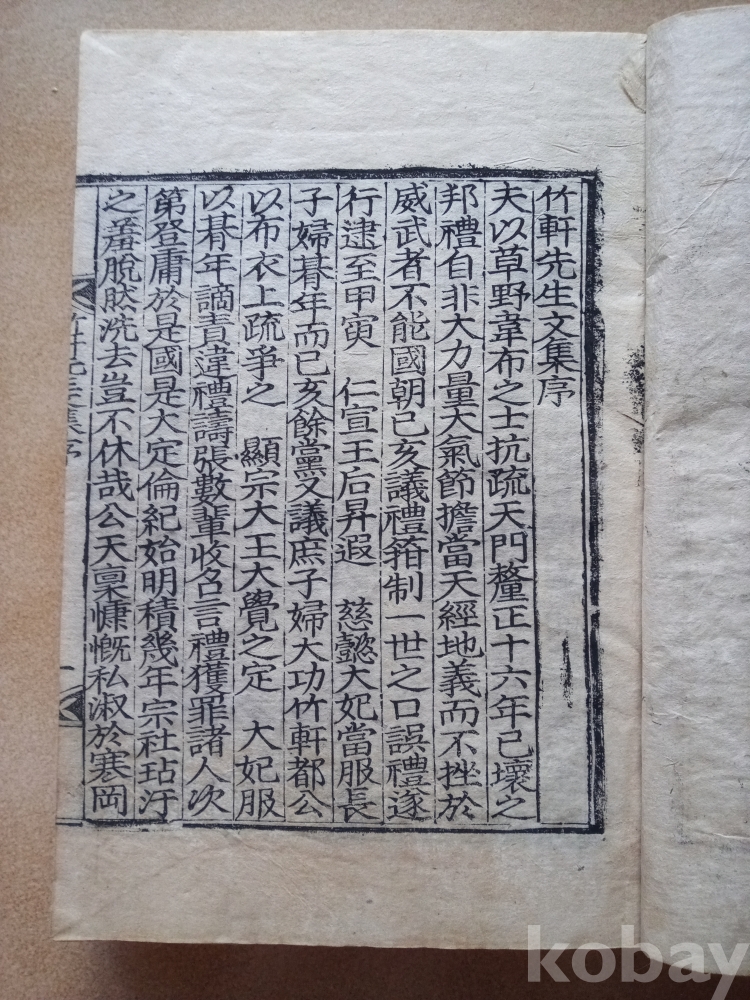 竹軒先生文集序
夫以草野韋布之士抗疏天門釐正十六年已壞之
邦禮自非大力量大氣節擔當天經地義而不挫於
威武者不能國朝己亥議禮箝制一世之口誤禮遂
行逮至甲寅 仁宣王后昇遐 慈懿大妃當服長
子婦朞年而己亥餘黨又議庶子婦大功竹軒都公
以布衣上疏爭之 顯宗大王大覺之定 大妃服
以朞年謫責違禮譸張數輩收名言禮獲罪諸人次
第登庸於是國是大定倫紀始明積幾年宗社玷汙
之羞脫然洗去豈不休哉公天稟慷慨私淑於寒岡
集序
一
kobay